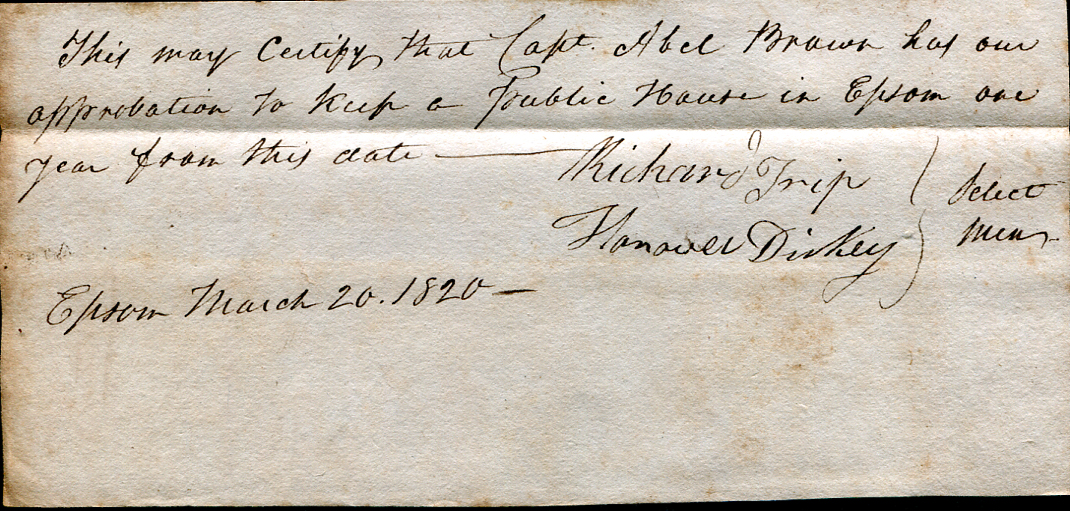 This may Certify that Capt. Abel Brown has our
approbation to Keep a Public House in Epsom one
year from this date —
Richard Trip
Hanover Dickey
Select
Men
Epsom March 20. 1820 —